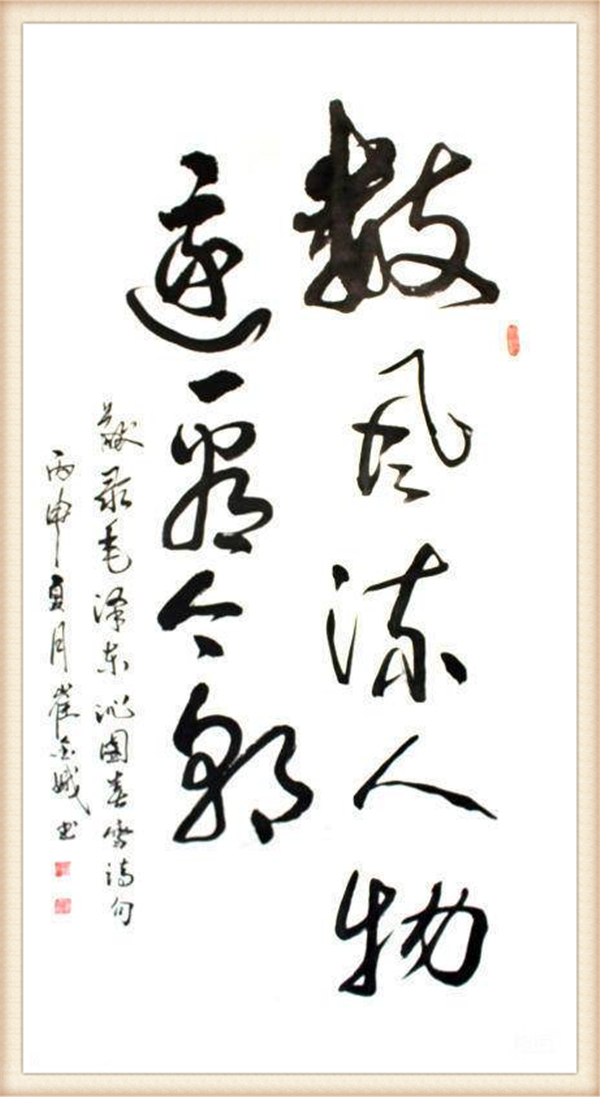 数风流人物
還看今朝
敬录毛泽东沁園春雪诗句
丙申夏月崔金娥书